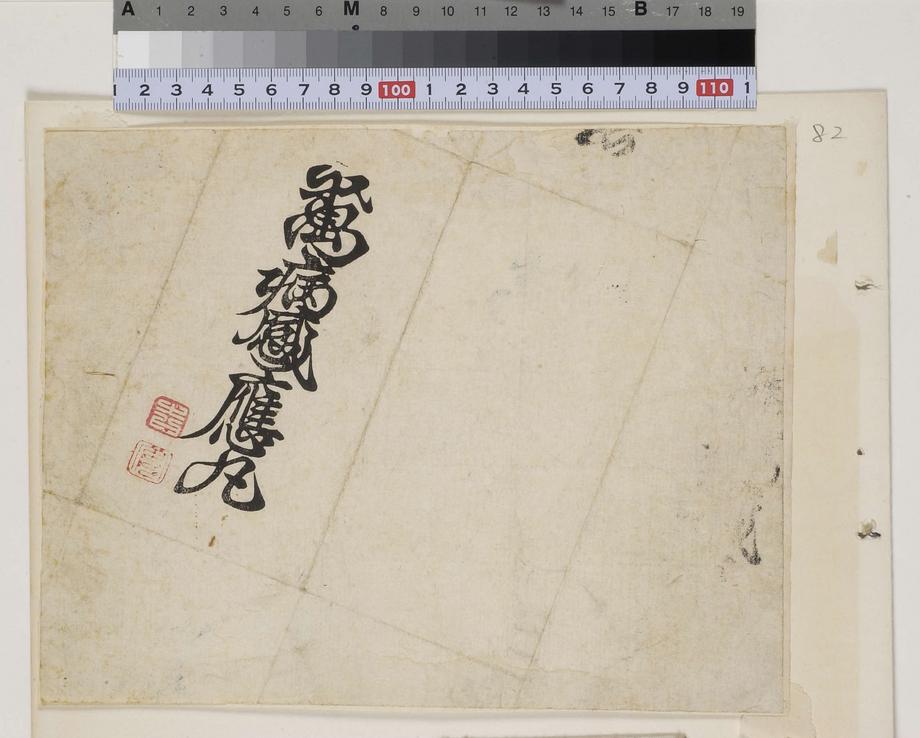 A 1 2 3 4 5 6 M 8 9 10 11 12 13 14 15 B 17 18 19
1 2 3 4 5 6 7 8 9 100 1 2 3 4 5 6 7 8 9 110 1
82
萬病感應丸